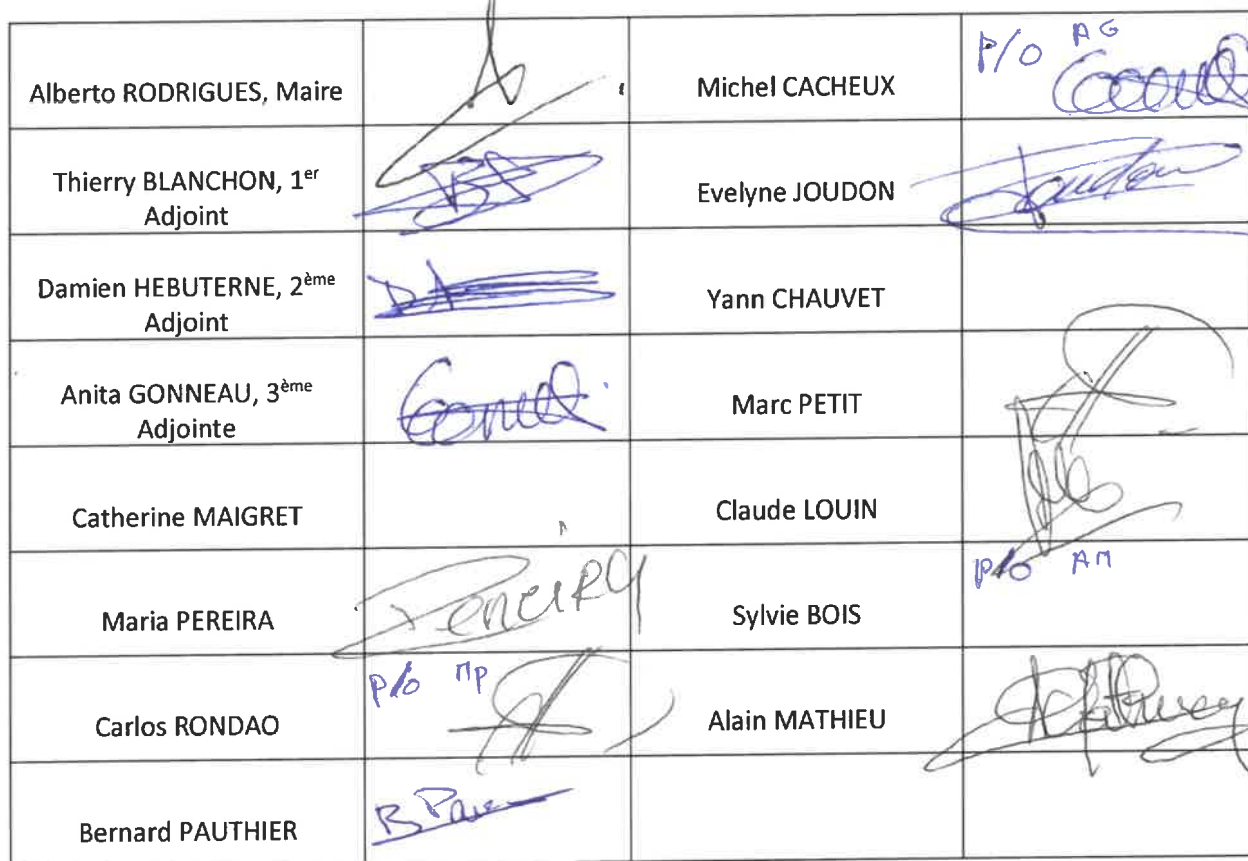 Alberto RODRIGUES, Maire
Michel CACHEUX
P/O AG
Thierry BLANCHON, 1er
Adjoint
Evelyne JOUDON
Joudon
Damien HEBUTERNE, 2ème
Adjoint
Yann CHAUVET
Anita GONNEAU, 3ème
Adjointe
Marc PETIT
Catherine MAIGRET
Claude LOUIN
Maria PEREIRA
Pereira
Sylvie BOIS
P/o AM
Carlos RONDAO
P/o MP
Alain MATHIEU
Bernard PAUTHIER